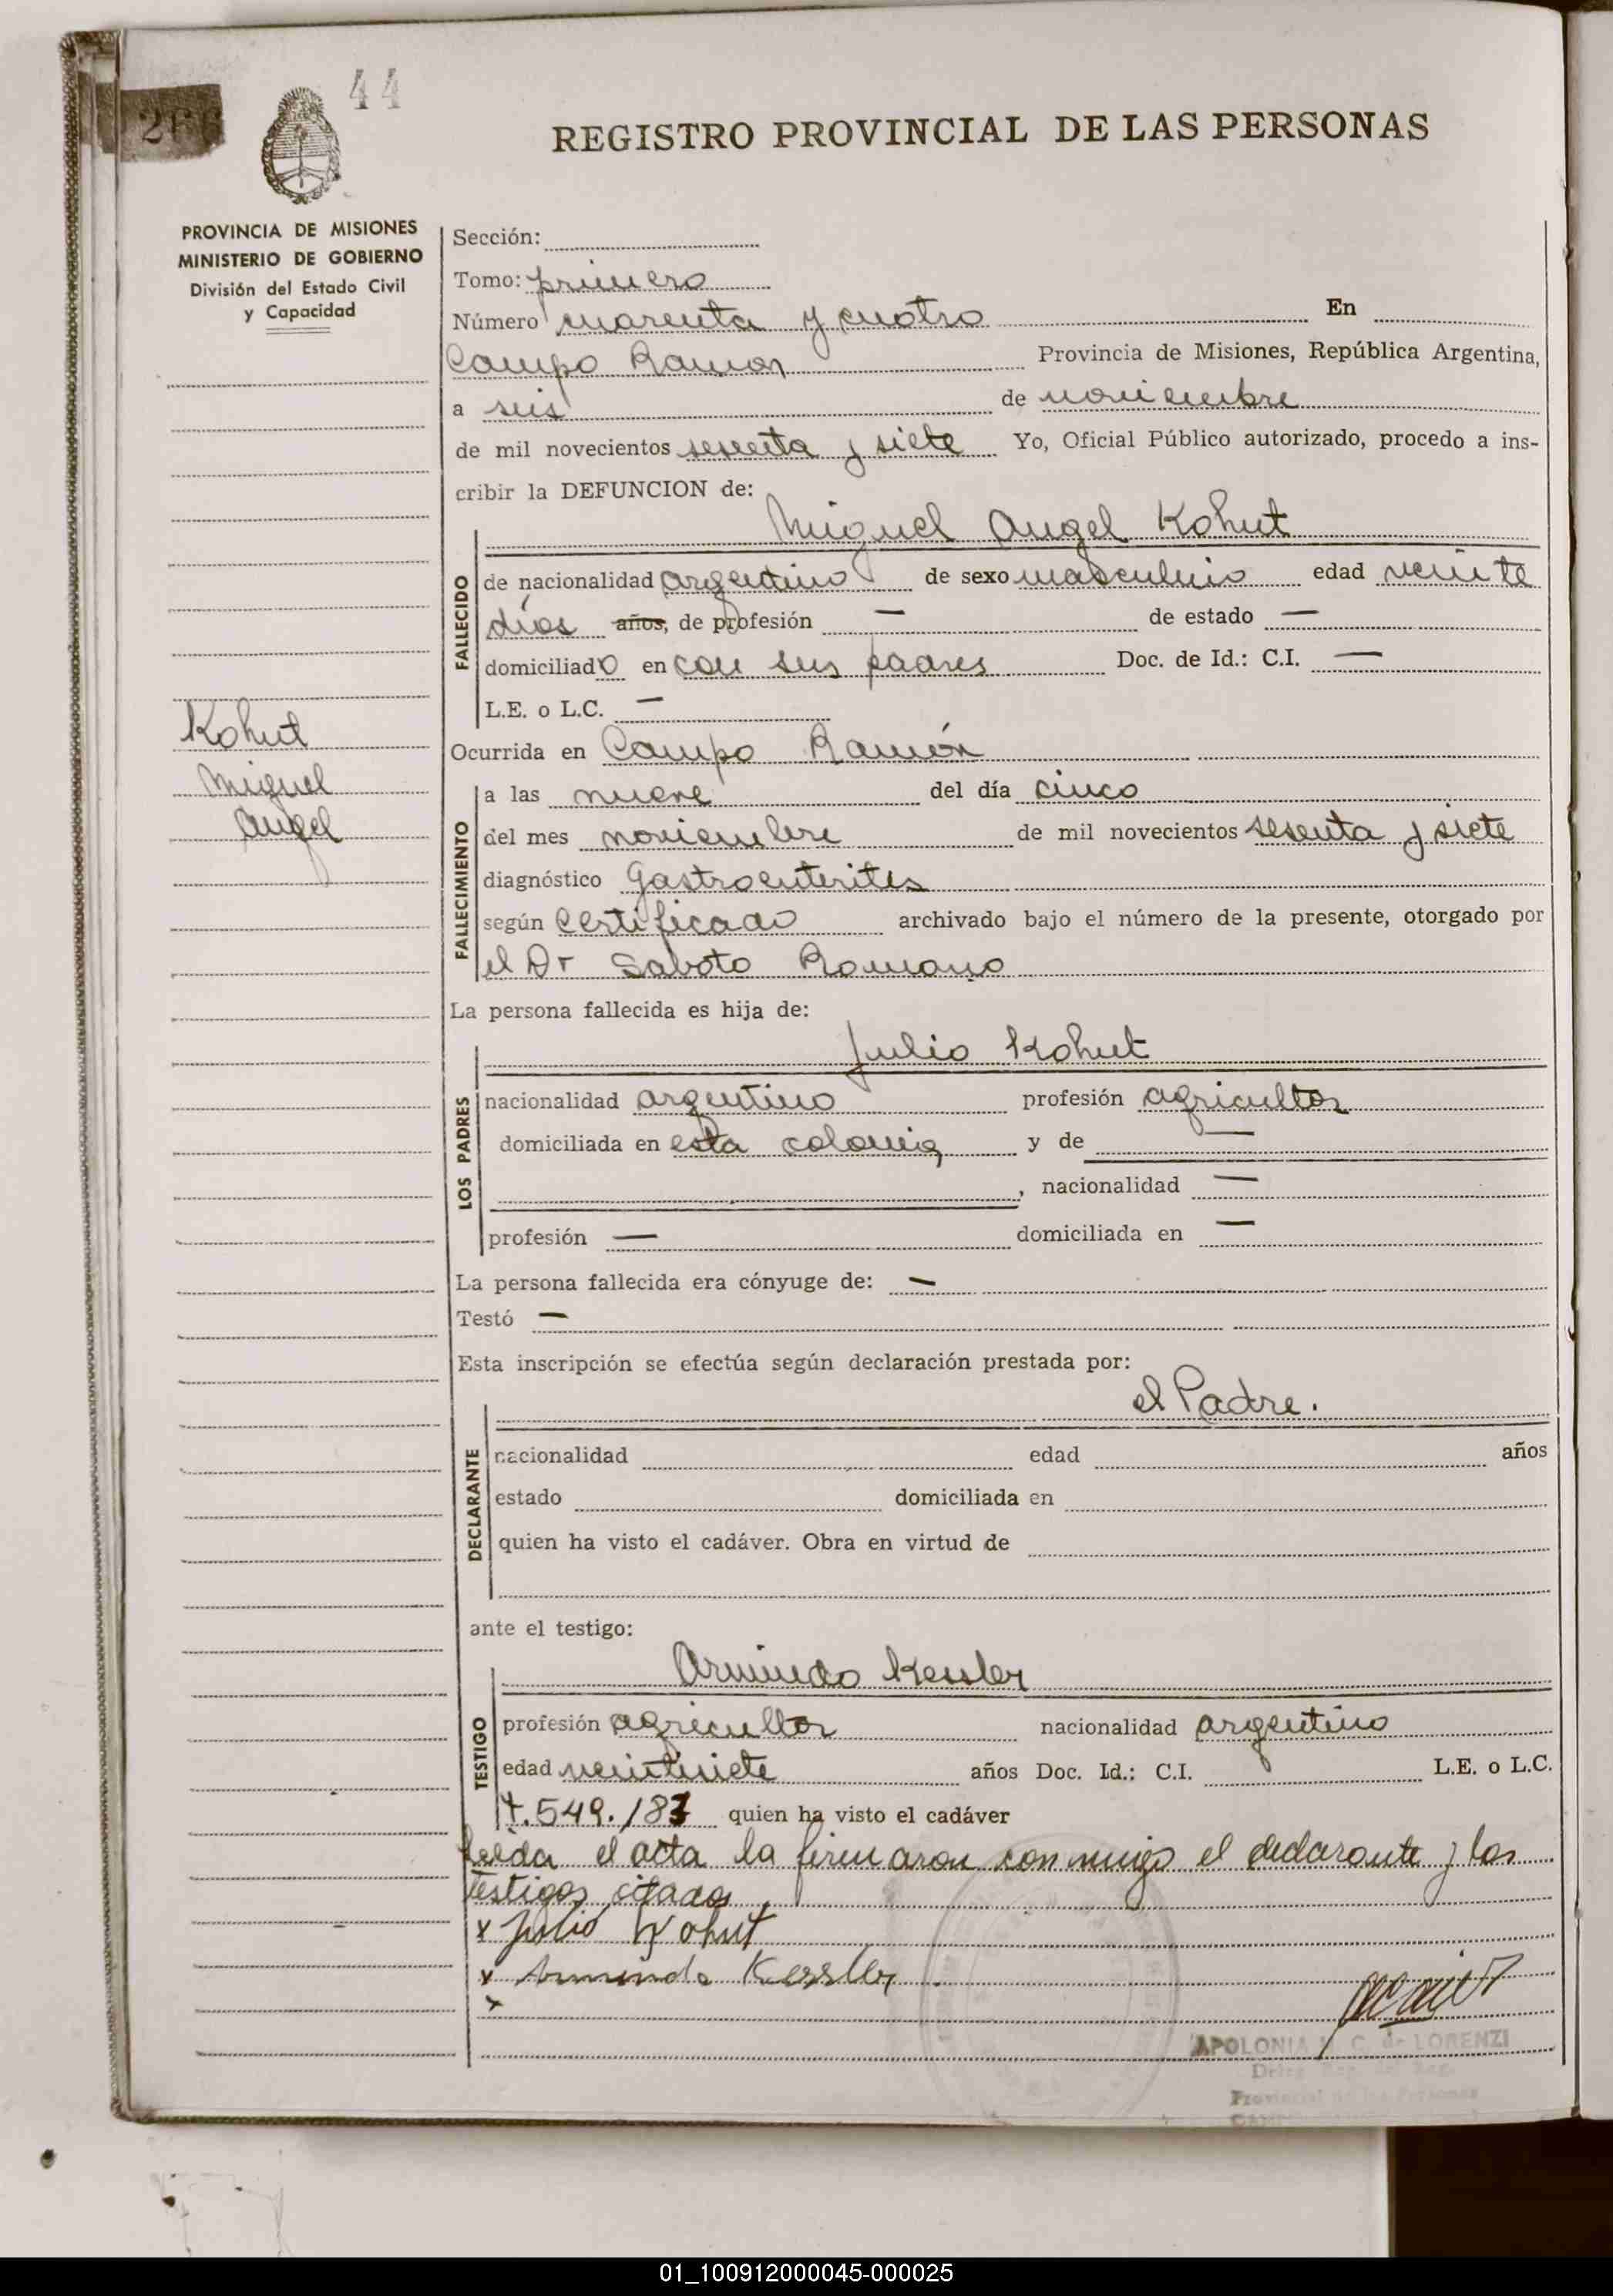 44
REGISTRO PROVINCIAL DE LAS PERSONAS
PROVINCIA DE MISIONES
MINISTERIO DE GOBIERNO
División del Estado Civil
y Capacidad
Kohut
Miguel
Angel
Sección:
Tomo: primero
Número cuarenta y cuatro En
Campo Ramon Provincia de Misiones, República Argentina,
a seis de noviembre
de mil novecientos sesenta y siete Yo, Oficial Público autorizado, procedo a ins-
cribir la DEFUNCION de:
Miguel Angel Kohut
FALLECIDO
de nacionalidad argentino de sexo masculino edad veinte
días años, de profesión — de estado —
domiciliado en con sus padres Doc. de Id.: C.I. —
L.E. o L.C. —
Ocurrida en Campo Ramón
FALLECIMIENTO
a las nueve del día cinco
del mes noviembre de mil novecientos sesenta y siete
diagnóstico Gastroenterites
según Certificado archivado bajo el número de la presente, otorgado por
el Dr Saboto Romano
La persona fallecida es hija de:
Julio Kohut
LOS PADRES
nacionalidad argentino profesión agricultor
domiciliada en esta colonia y de —
, nacionalidad —
profesión — domiciliada en —
La persona fallecida era cónyuge de: —
Testó —
Esta inscripción se efectúa según declaración prestada por:
el Padre.
DECLARANTE
nacionalidad edad años
estado domiciliada en
quien ha visto el cadáver. Obra en virtud de
ante el testigo:
Armindo Kessler
TESTIGO
profesión agricultor nacionalidad argentino
edad veintisiete años Doc. Id.: C.I. L.E. o L.C.
quien ha visto el cadáver
Leída el acta la firmaron conmigo el declarante y los
testigos citados
x Julio Kohut
x Armindo Kessler
x
APOLONIA C. de LORENZI
Provincial de las Personas
01_100912000045-000025